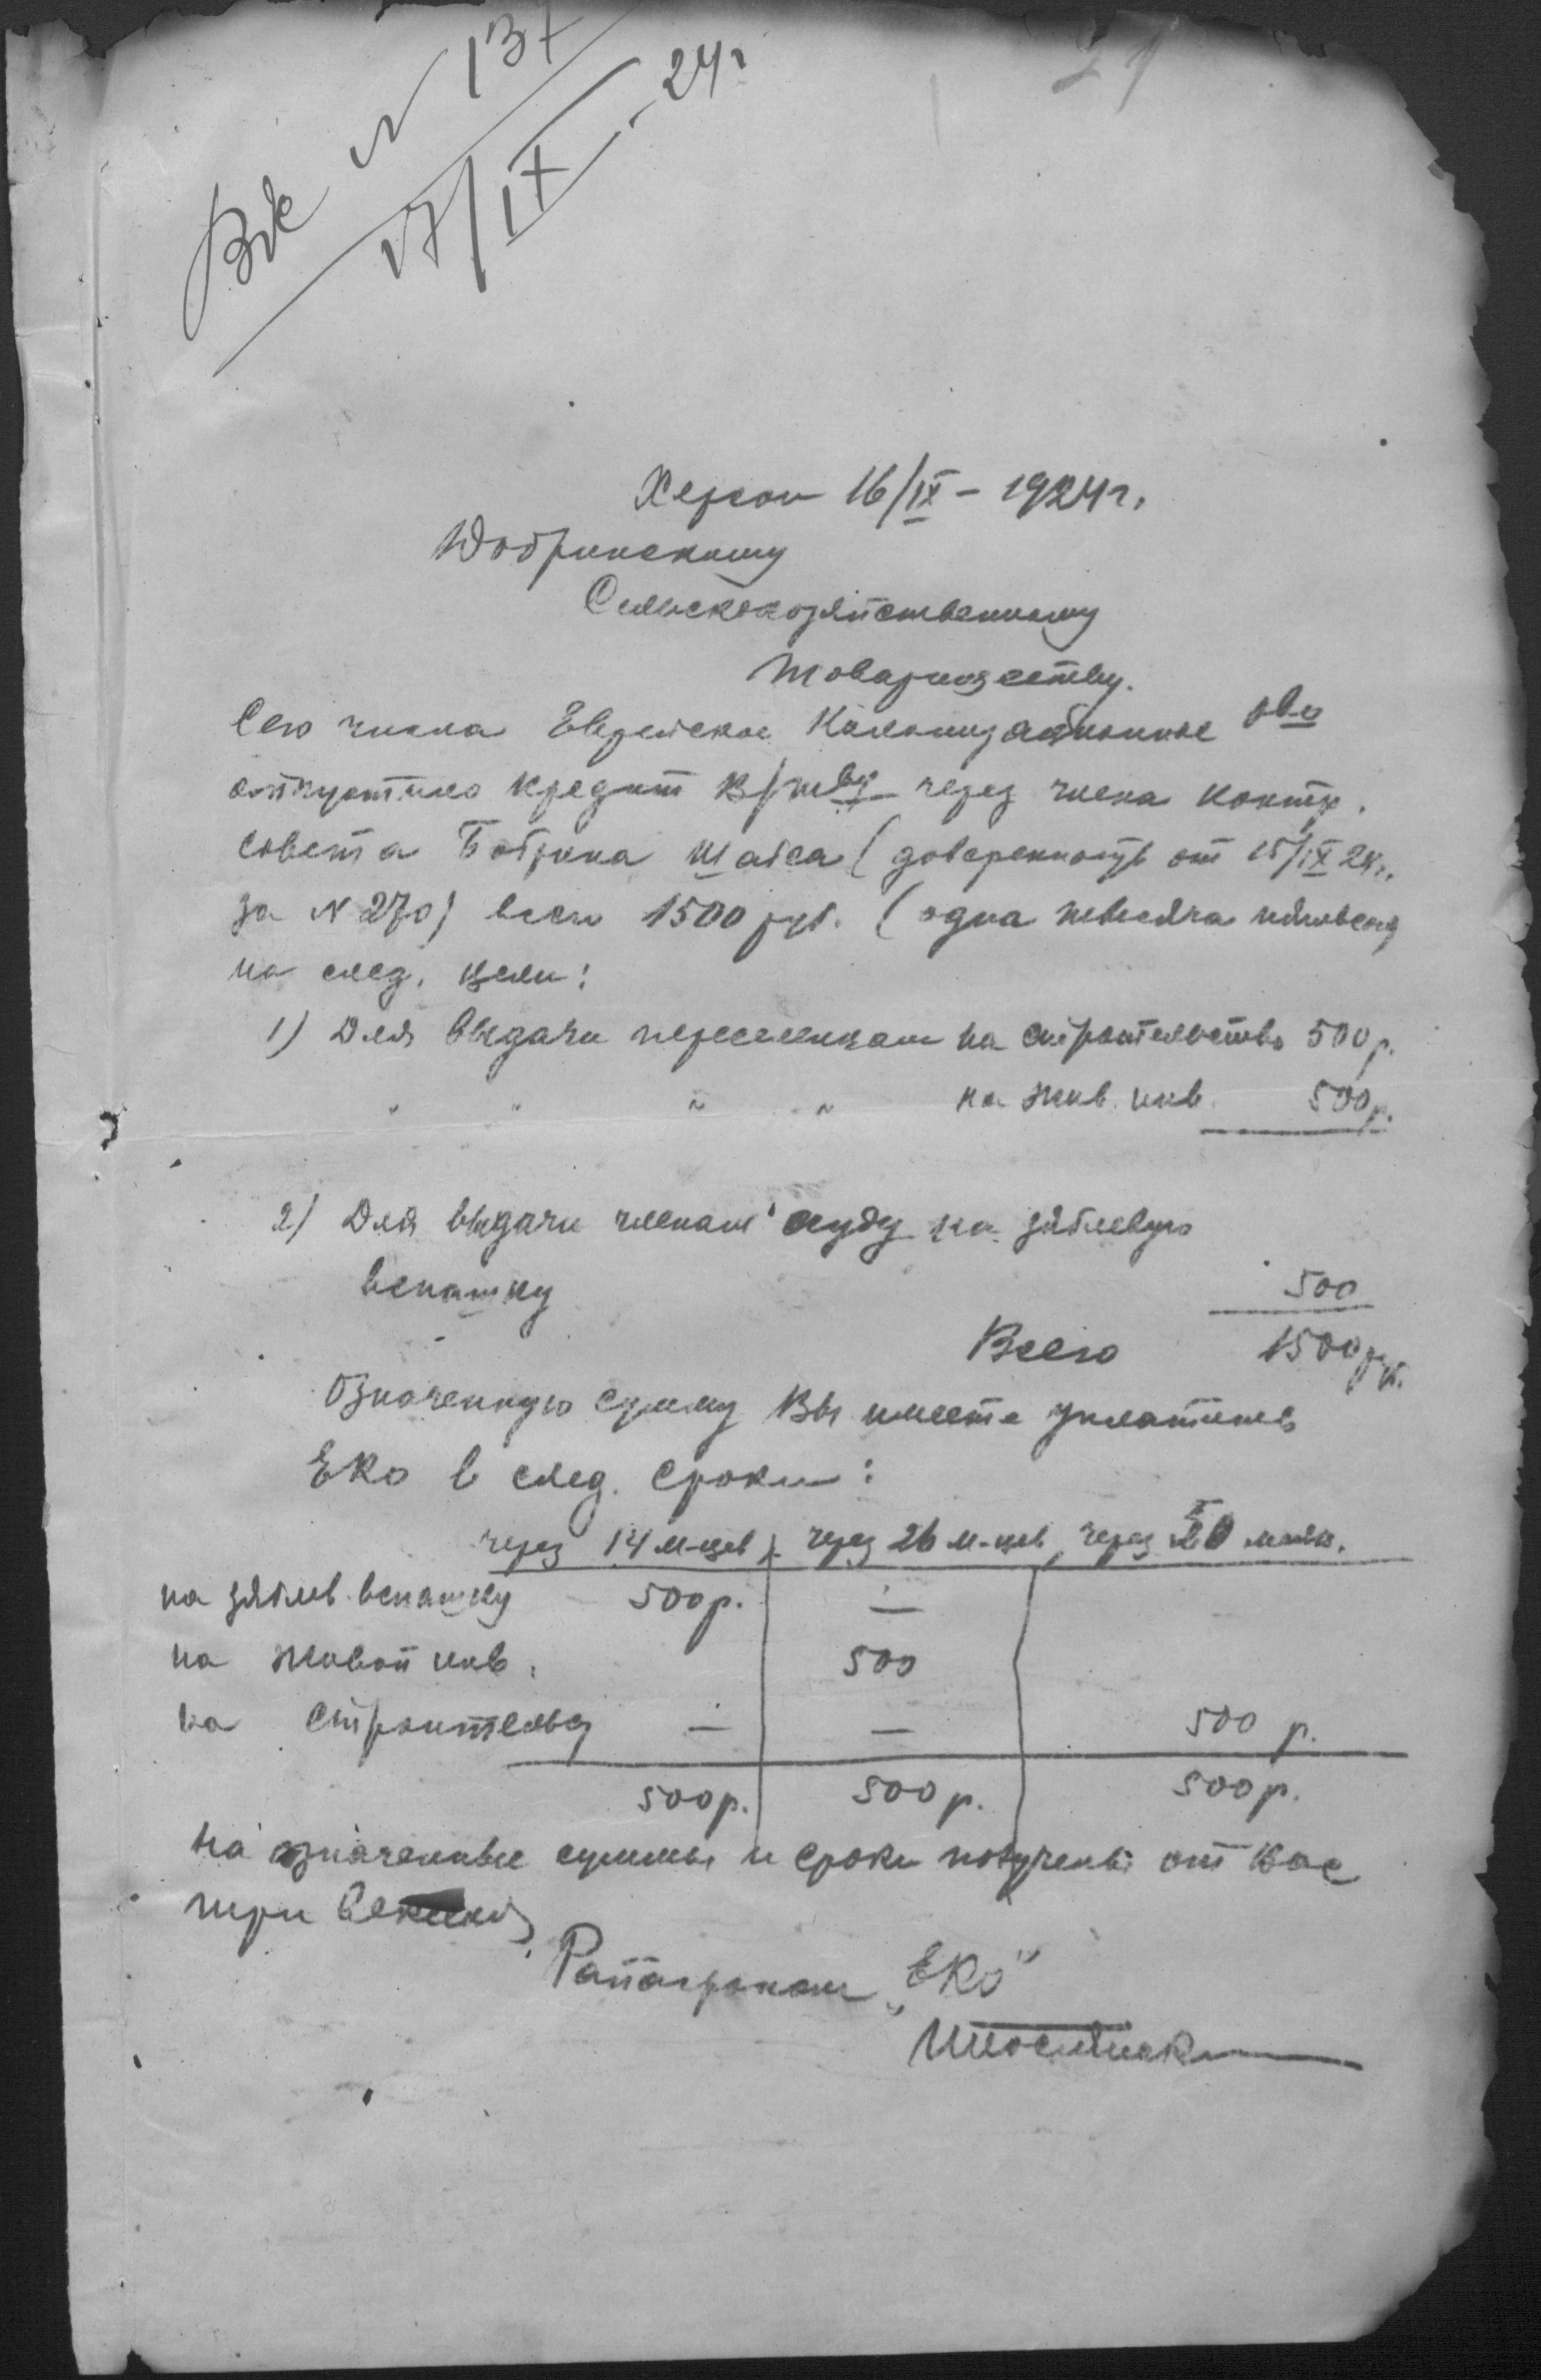 Вх N 137
17/IX - 24г
21
Херсон 16/IX - 1924г.
Добринскому
Сельскохозяйственному
Товариществу.
Сего числа Еврейское Колонизационное о-во
отпустило кредит В/т-ву через члена контр.
совета Бобрика Шаеса (доверенность от 15/IX 24г.
за N 270) всего 1500 руб. (одна тысяча пятьсот)
на след. цели:
1) Для выдачи переселенцам на строительство 500 р.
" " " " на жив. инв. 500 р.
2) Для выдачи членам ссуду на зяблевую
вспашку 500
Всего 1500 руб.
Означенную сумму Вы имеете уплатить
ЕКО в след. сроки:
через 14 м-цев, через 26 м-цев, через
на зяблев. вспашку 500р. —
на живой инв. 500
на строительст — — 500 р.
500р. 500р. 500р.
На означенные суммы и сроки получены от Вас
три
Райагроном „ЕКО"